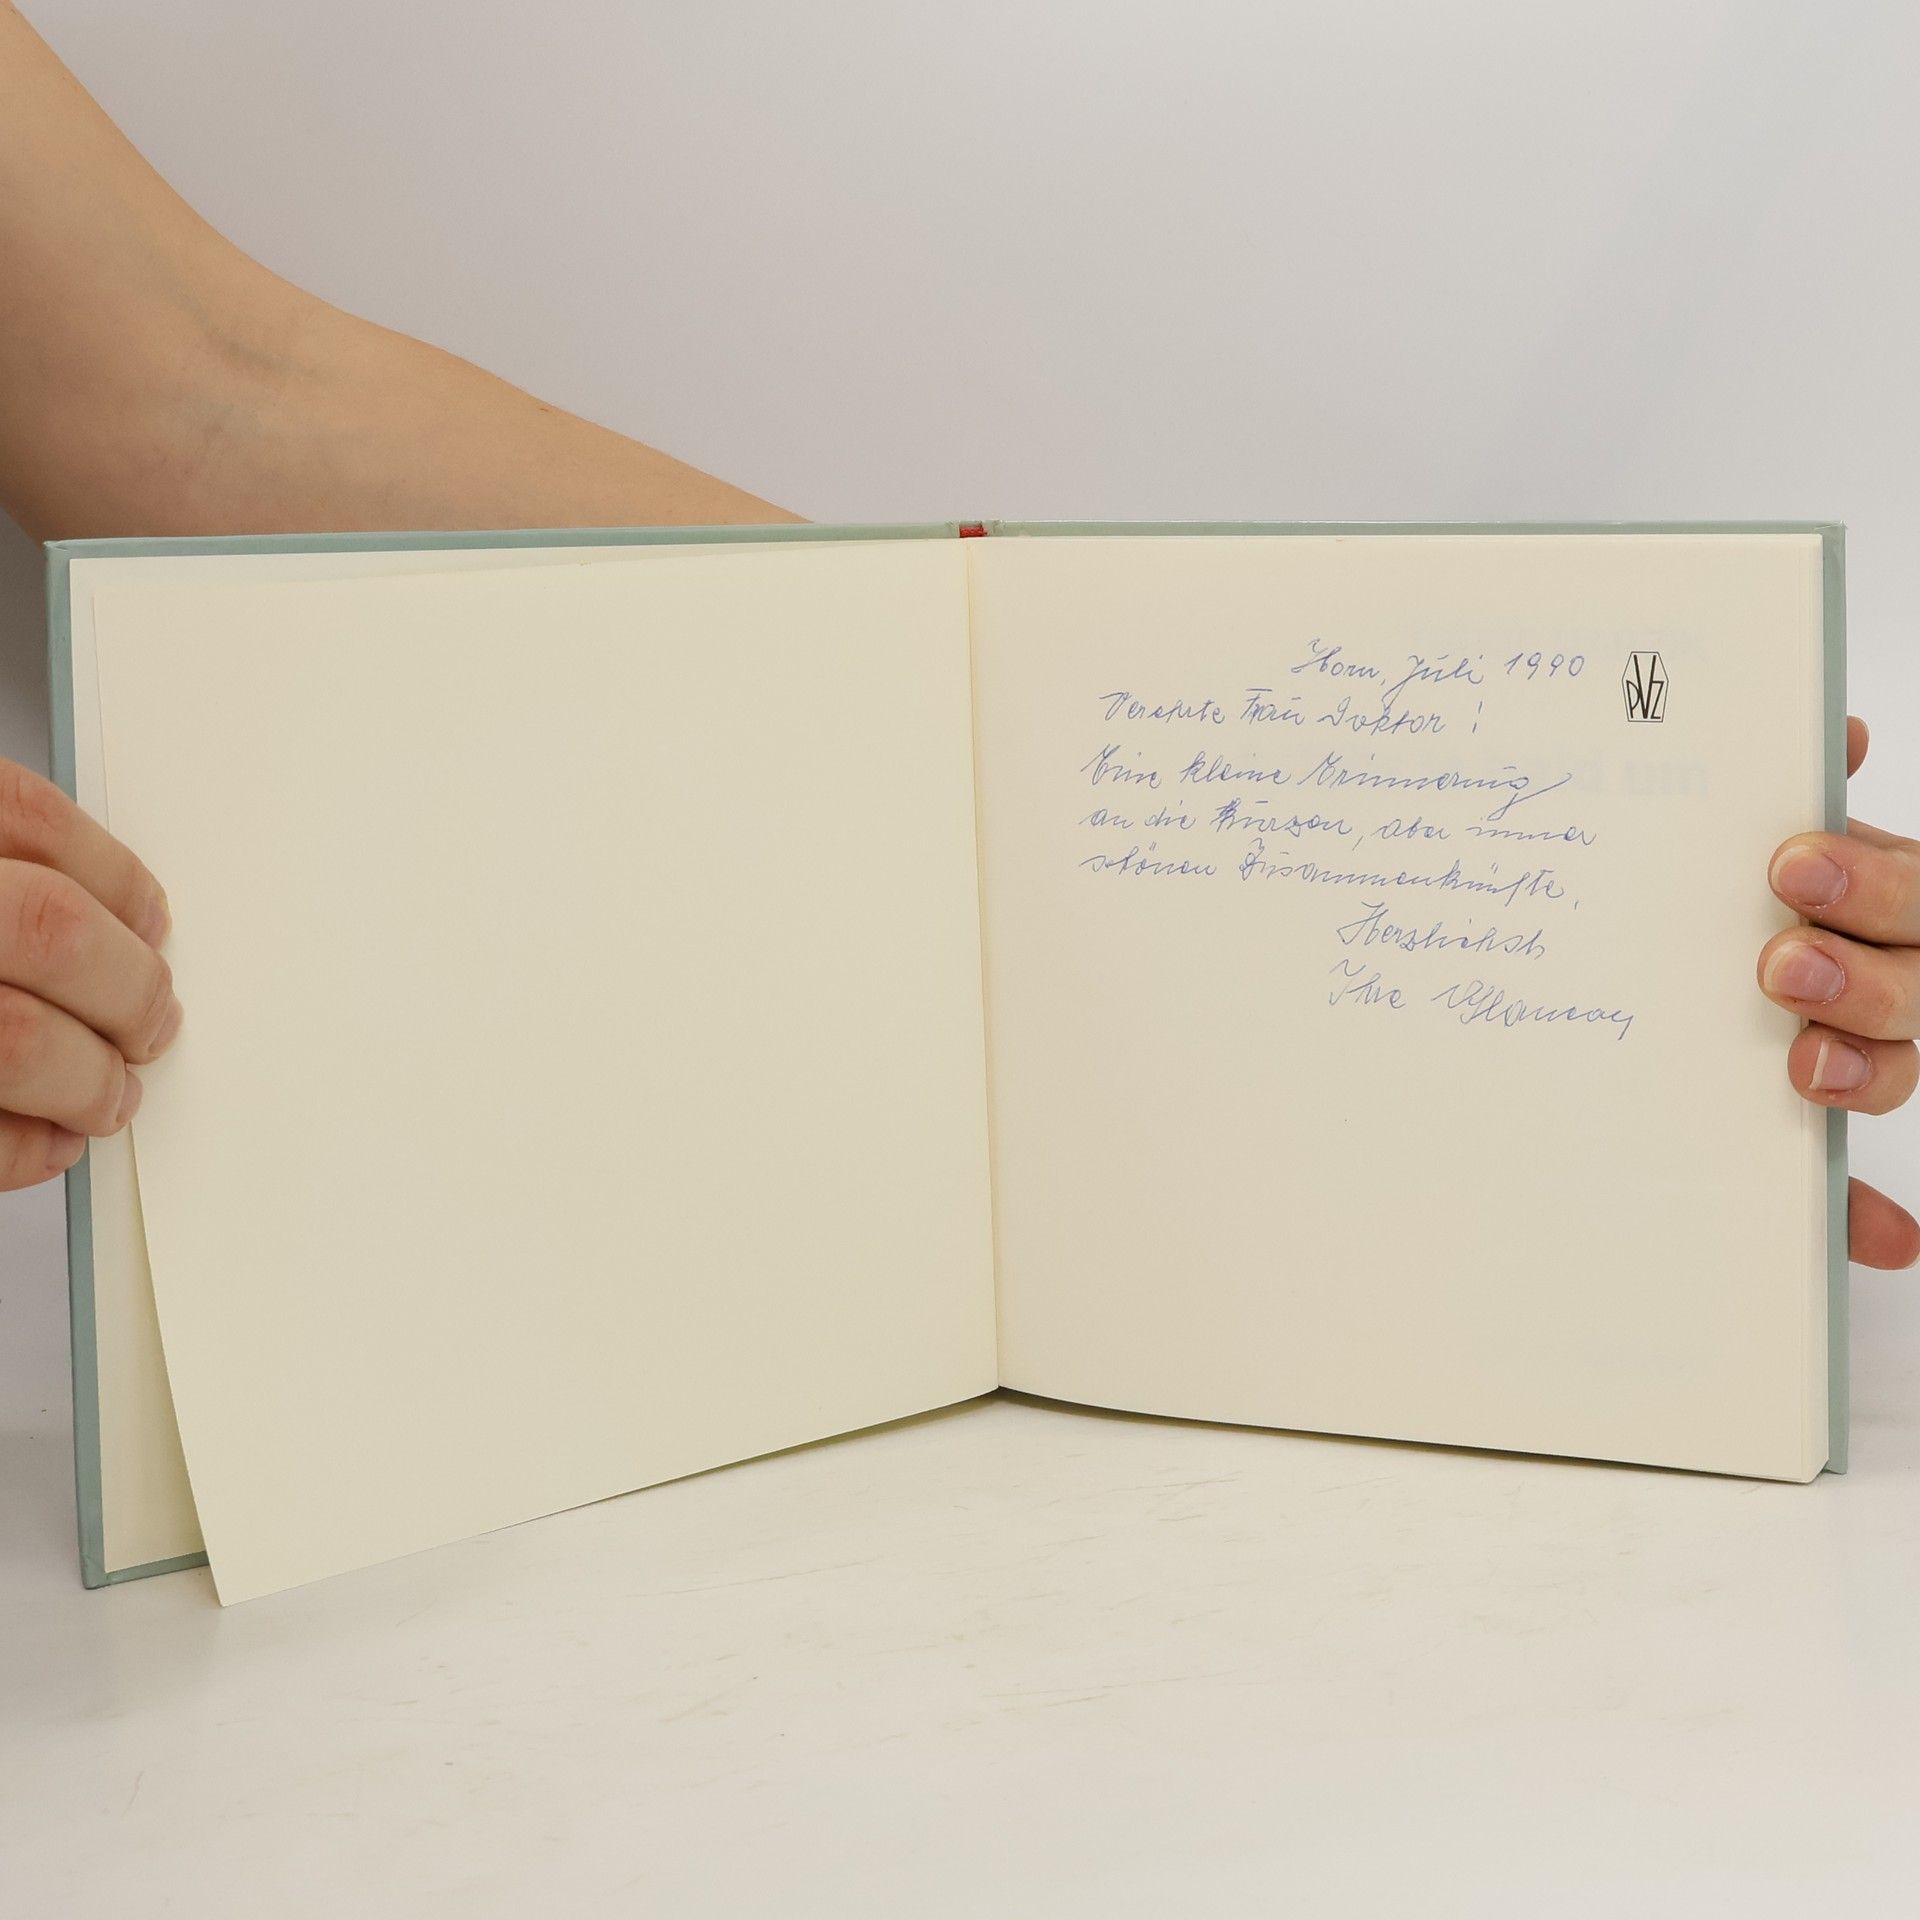 Horn, Juli 1990
PVZ
Verehrte Frau Doktor!
Eine kleine Erinnerung
an die kurzen, aber immer
schönen Zusammenkünfte,
Herzlichst
Ihre